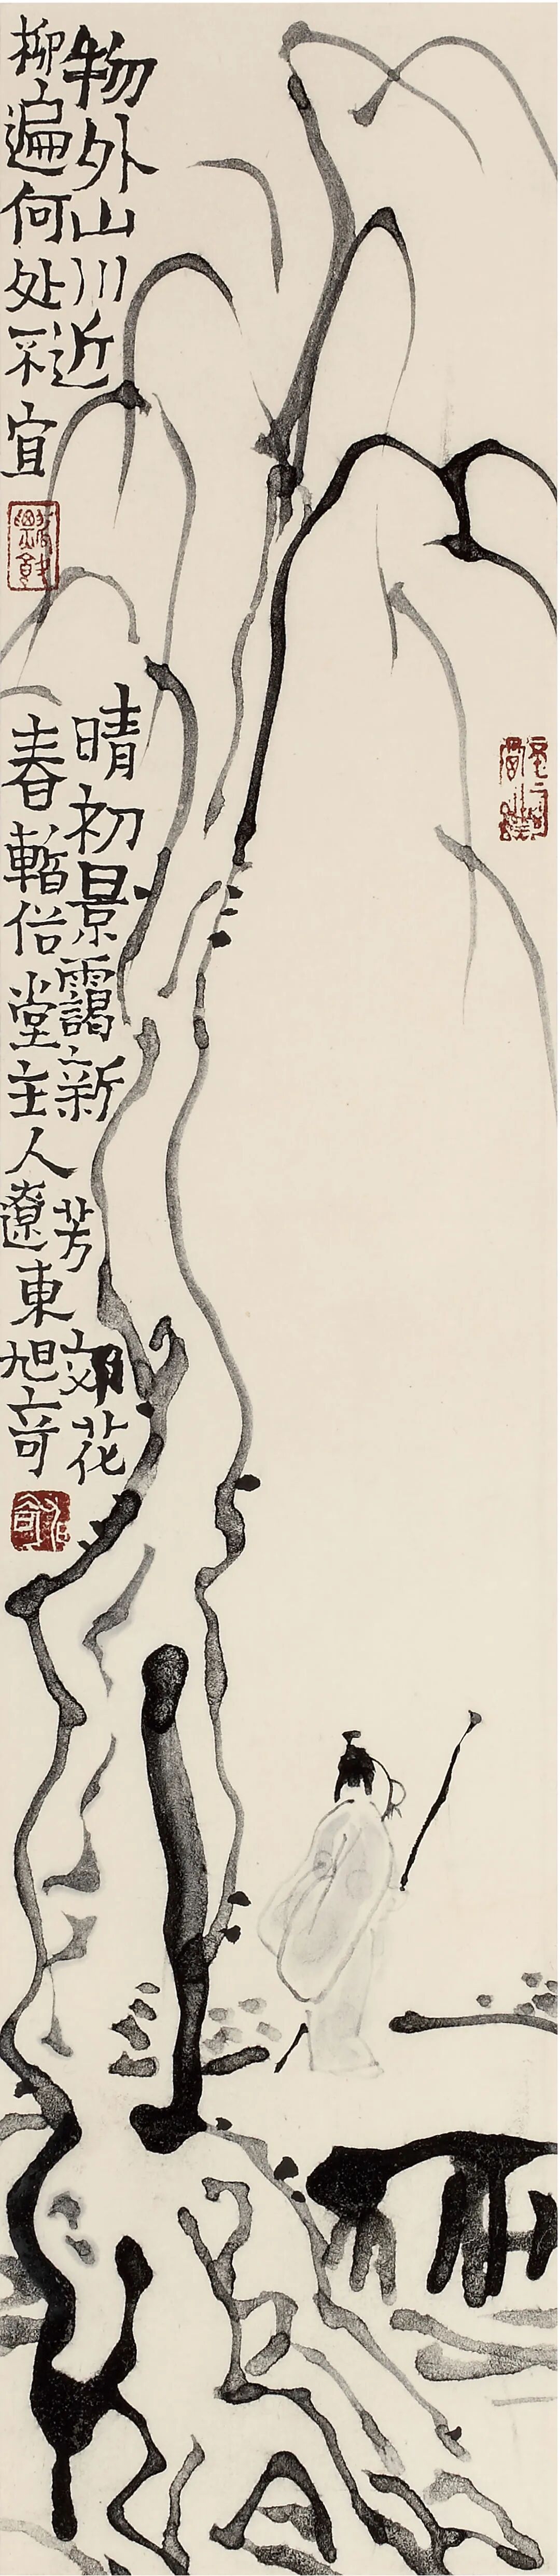 物外山川近晴初景靄新芳郊花
柳遍何处不宜春暫俗堂主人遼東旭奇